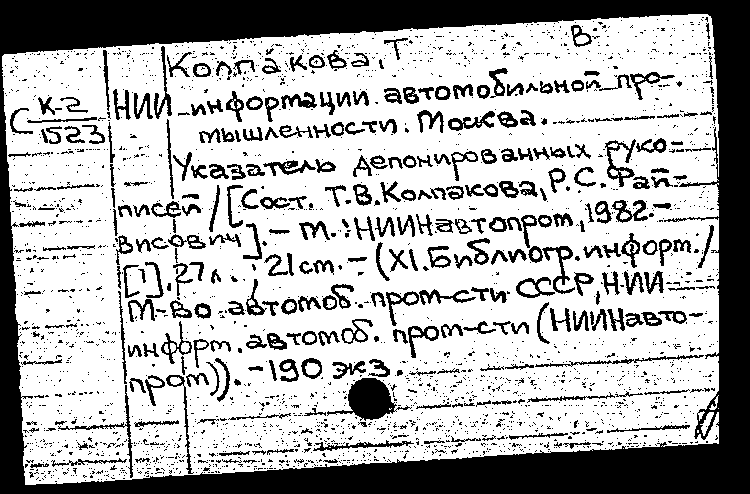 Колпакова, Т В
С К-2/1523
НИИ информации автомобильной про-
мышленности. Москва.
Указатель депонированных руко-
писей / [Сост. Т.В.Колпакова, Р.С.Фай-
висович]. – М.: НИИНавтопром, 1982.–
[1], 27 л. ; 21 cm. – (XI. Библиогр. информ. /
М-во автомоб. пром-сти СССР, НИИ
информ. автомоб. пром-сти (НИИНавто-
пром)). – 190 экз.